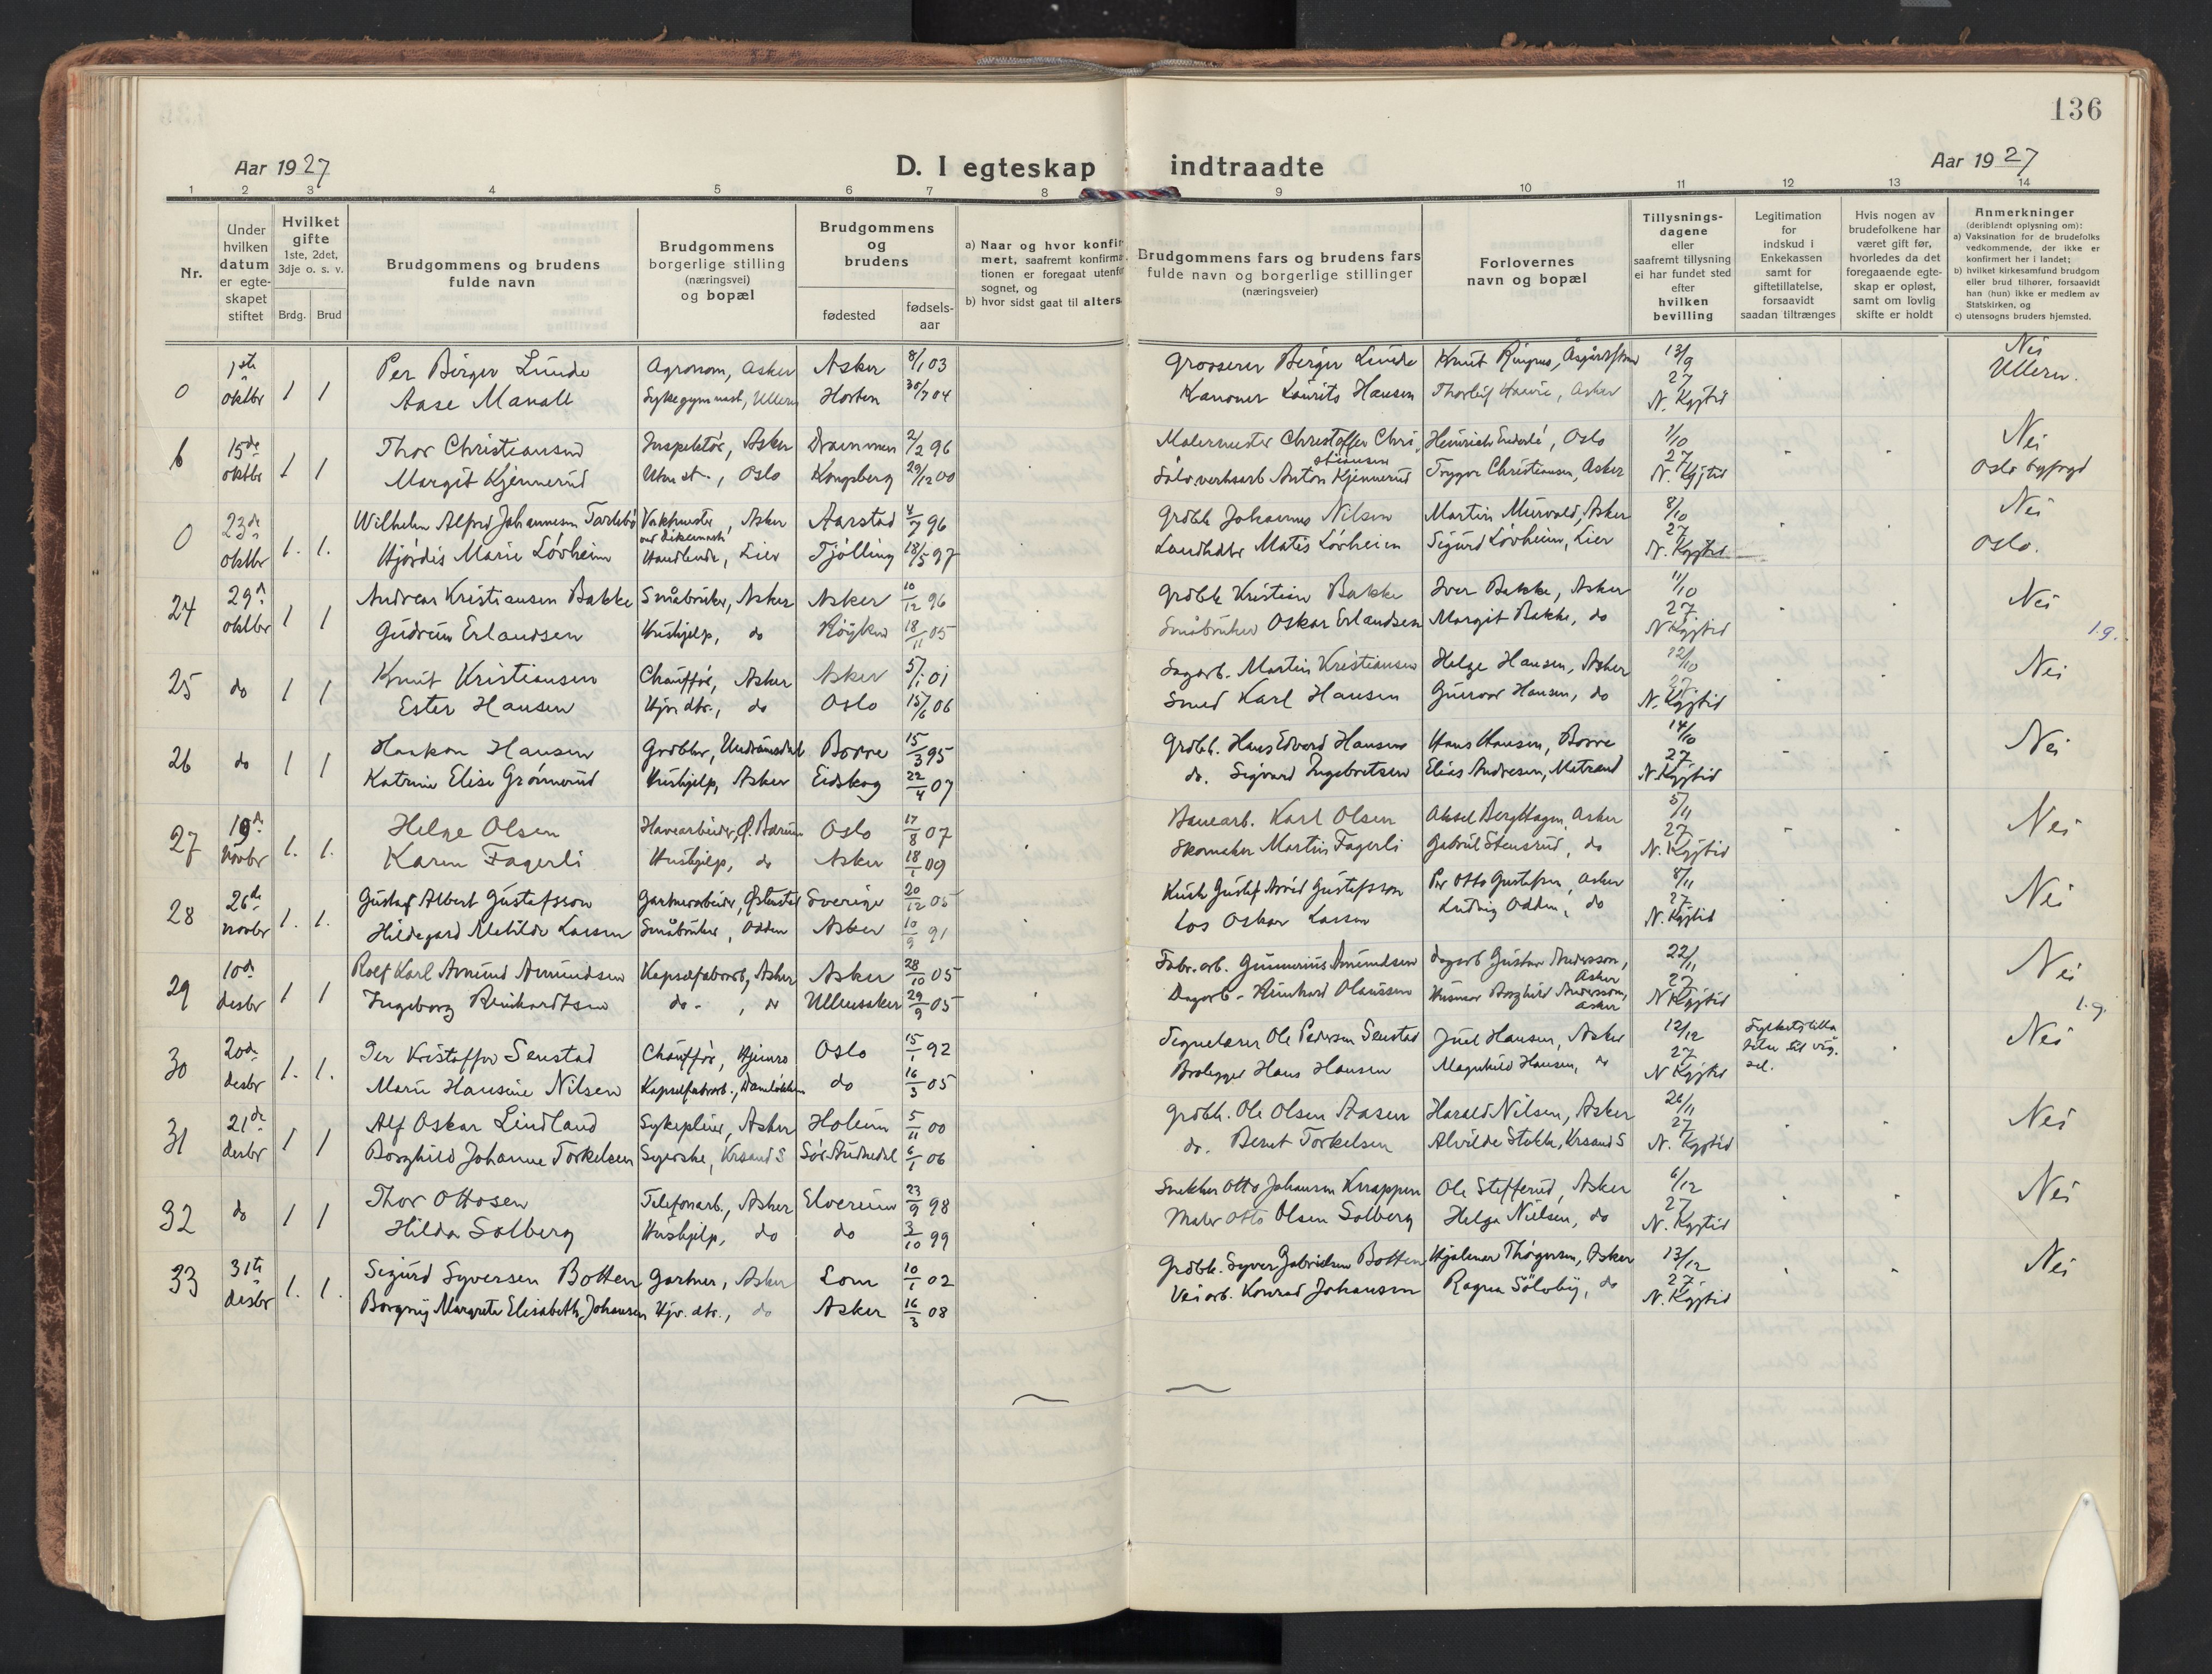 136
Aar 1927
D. I egteskap indtraadte
Aar 1927
1 2 3 4 5 6 7 8 9 10 11 12 13 14
Nr.
Under
hvilken
datum
er egte-
skapet
stiftet
Hvilket
gifte
1ste, 2det,
3dje o. s. v.
Brdg. Brud
Brudgommens og brudens
fulde navn
Brudgommens
borgerlige stilling
(næringsvei)
og bopæl
Brudgommens
og
brudens
fødested
fødsels-
aar
a) Naar og hvor konfir
mert, saafremt konfirma
tionen er foregaat utenfo
sognet, og
b) hvor sidst gaat til alters
Brudgommens fars og brudens fars
fulde navn og borgerlige stillinger
(næringsveier)
Forlovernes
navn og bopæl
Tillysnings-
dagene
eller
saafremt tillysning
ei har fundet sted
efter
hvilken
bevilling
Legitimation
for
indskud i
Enkekassen
samt for
giftetillatelse,
forsaavidt
saadan tiltrænges
Hvis nogen av
brudefolkene har
været gift før,
hvorledes da det
foregaaende egte-
skap er opløst,
samt om lovlig
skifte er holdt
Anmerkninger
(deriblandt oplysning om):
a) Vaksination for de brudefolks
vedkommende, der ikke er
konfirmert her i landet;
b) hvilket kirkesamfund brudgom
eller brud tilhører, forsaavidt
han (hun) ikke er medlem av
Statskirken, og
c) utensogns bruders hjemsted.
0 1ste oktbr 1 1 Per Birger Lunde Agronom, Asker Asker 8/1 03 Grosserer Birger Lunde Knut 13/9 27 N. Kgjtid Nei
Aase Manall Sykegymnast, Ullern Horten 30/7 04 Kanoner Laurits Hansen Thorleif Asker Ullern.
6 15de oktbr 1 1 Thor Christiansen Inspektør, Asker Drammen 2/2 96 Malermester Christoffer Christiansen Heinrich Oslo 1/10 27 N. Kgjtid Nei
Margit Kjennerud Oslo Kongsberg 29/12 00 Sølvverksarb Anton Kjennerud Trygve Christiansen, Asker Oslo byfogd
0 23de oktbr 1. 1. Wilhelm Alfred Johannesen Vaktmester, Asker Aarstad 4/7 96 Grdbk Johannes Nilsen Martin Murvold, Asker 8/10 27 N. Kgjtid Nei
ved Dikemark
Hjørdis Marie Løvheim Handlende, Lier Tjølling 18/5 97 Landhdlr Matis Løvheim Sigurd Løvheim, Lier Oslo.
24 29de oktbr 1 1 Andreas Kristiansen Bakke Småbruker, Asker Asker 10/12 96 Grdbk Kristian Bakke Iver Bakke, Asker 11/10 27 N. Kgjtid Nei
Gudrun Erlandsen Hushjelp, do Røyken 18/11 05 Småbruker Oskar Erlandsen Margit Bakke, do
1.g.
25 do 1 1 Knut Kristiansen Chauffør, Asker Asker 5/1 01 Sagarb. Martin Kristiansen Helge Hansen, Asker 12/10 27. N. Kgjtid Nei
Ester Hansen Hjv. dtr., do Oslo 15/6 06 Smed Karl Hansen Gunvor Hansen, do
26 do 1 1 Haakon Hansen Grdbkr, Undrumsdal Borre 15/3 95 Grdbk. Hans Edvard Hansen Hans Hansen, Borre 14/10 27 N. Kgjtid Nei
Katrine Elise Grønnerud Hushjelp, Asker Eidskog 22/4 07 do. Sigvard Ingebretsen Elias Andresen, Matrand
27 19de novbr 1. 1. Helge Olsen Havearbeider, Ø. Bærum Oslo 17/8 07 Banearb. Karl Olsen Aksel Berghagen, Asker 5/11 27 N. Kgjtid Nei
Karen Fagerli Hushjelp, do Asker 18/1 09 Skomaker Martin Fagerli Gabriel Stensrud, do
28 26de novbr 1. 1. Gustaf Albert Gustafsson Gartnerarbeider, Østenstad Sverige 20/12 05 Kusk Gustaf Arvid Gustafsson Per Otto Gustafson, Asker 8/11 27 N. Kgjtid Nei
Hildegard Matilde Larsen Småbruker, Odden Asker 10/9 91 Los Oskar Larsen Ludvig Odden, do
29 10de desbr 1 1 Rolf Karl Amund Amundsen Kapselfabarb, Asker Asker 28/10 05 Fabr. arb. Gunnerius Amundsen Dagarb Gustav Andersson, Asker 22/11 27 N. Kgjtid Nei
Ingeborg Reinhardtsen do. , do Ullensaker 29/9 05 Dagarb. Reinhard Olaussen Husmor Borghild Andersson, Asker
1.g.
30 20de desbr 1. 1. Per Kristoffer Senstad Chauffør, Hjemro Oslo 15/1 92 Tegnelærer Ole Pedersen Senstad Juel Hansen, Asker 12/12 27 N. Kgjtid til vig. sel. Nei
Marie Hansine Nilsen Kapselfabarb., do 16/3 05 Brolegger Hans Hansen Magnhild Hansen, do
31 21de desbr 1 1 Alf Oskar Lindland Sykepleier, Asker Holum 5/11 00 Grdbk. Ole Olsen Aasen Harald Nilsen, Asker 26/11 27 N. Kgjtid Nei
Borghild Johanne Torkelsen Syerske, Krsand S Sør Audnedal 6/1 06 do. Berut Torkelsen Alvilde Krsand S
32 do 1 1 Thor Ottosen Telefonarb., Asker Elverum 23/9 98 Snekker Otto Johansen Knappen Ole Stefferud, Asker 6/12 27 N. Kgjtid Nei
Hilda Solberg Hushjelp, do do 3/10 99 Maler Otto Olsen Solberg Helga Nielsen, do
33 31te desbr 1. 1. Sigurd Syversen Botten Gartner, Asker Lom 10/1 02 Grdbk. Syver Gabrielsen Botten Hjalmar Thøgersen, Asker 13/12 27. N. Kgjtid Nei
Borgny Margrete Elisabeth Johansen Hjv. dtr., do Asker 16/3 08 Veiarb. Konrad Johansen Ragna Sølvby, do